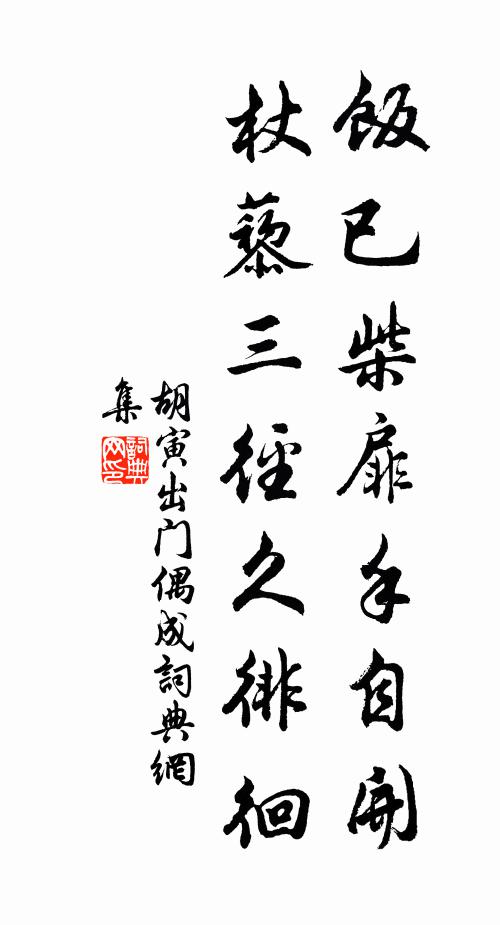 飯已柴扉手自開
杖藜三徑久徘徊
胡寅出门偶成詞典網
集
詞典网印